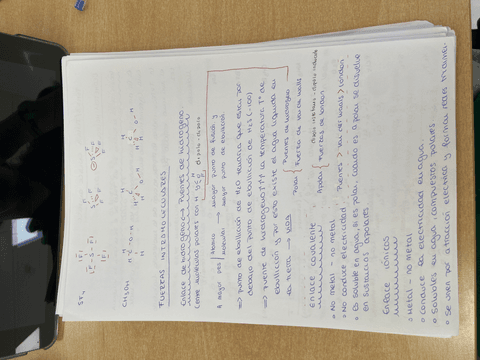 SF4
CH3OH
FUERZAS INTERMOLECULARES
Enlace de hidrógeno → Puentes de hidrógeno
entre moléculas polares con H
A mayor peso molecular → mayor punto de fusión y mayor punto de ebullición
⇒ Punto de ebullición de H2O
debajo del punto de ebullición de H2S (-100)
⇒ Puente de hidrógeno ↑↑↑ la temperatura Tª de
ebullición y por esto existe el agua líquida en
la tierra → VIDA
Polar Puentes de hidrógeno
Fuerzas de Van der Waals
Apolar Fuerzas de London
Puentes > Van der Waals > London
ENLACE COVALENTE
• No metal - no metal
• No conduce electricidad
• Es soluble en agua, si es polar. Cuando es apolar se disuelve
en sustancias apolares
ENLACE IÓNICOS
• Metal - no metal
• Conduce la electricidad en agua.
• Solubles en agua, compuestos polares
• Se unen por atracción eléctrica y forman redes tridimen.